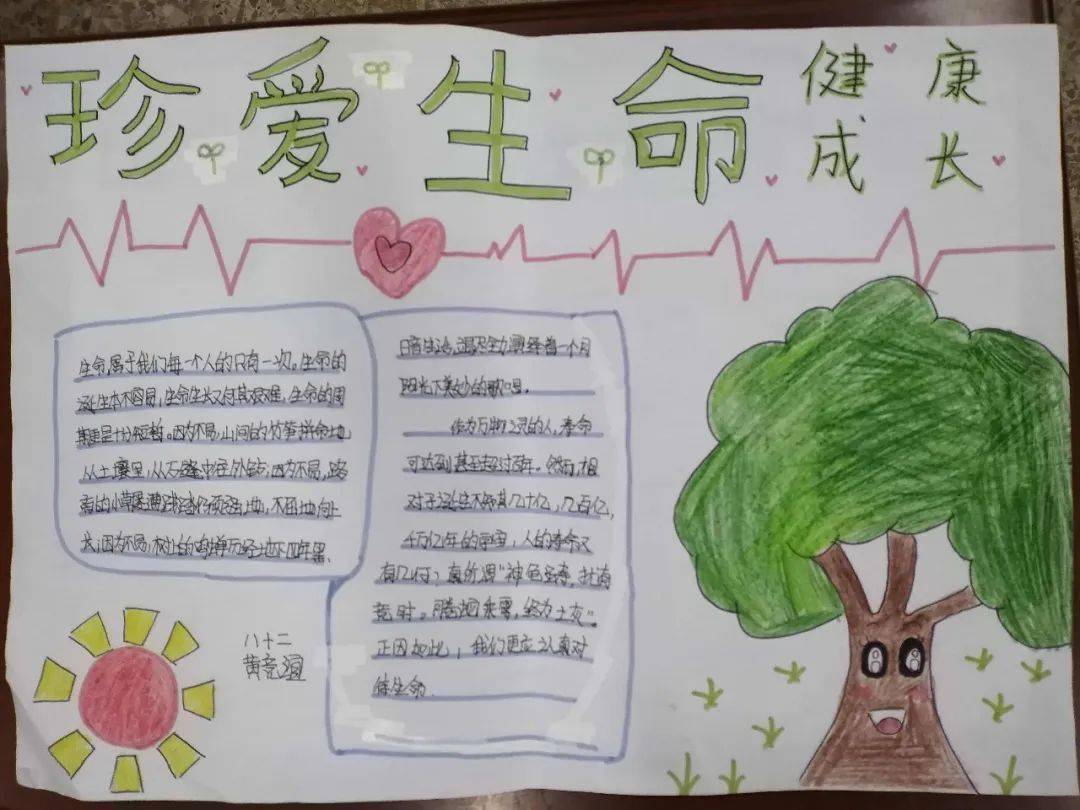 珍爱生命
健康
成长
生命,属于我们每一个人的只有一次。生命的
诞生本不容易,生命生长又何其艰难,生命的周
期更是十分短暂。因为不易,山间的竹笋拼命地
从土壤里,从石缝中往外钻;因为不易,路
旁的小草屡遭践踏仍顽强地,不屈地向上
长;因为不易,树上的鸣蝉历经地下四年黑
暗生活,竭尽全力演绎着一个月
阳光下美妙的歌唱。
作为万物之灵的人,寿命
可达到甚至超过百年。然而,相
对于诞生不知其几十亿,几百亿,
千万亿年的宇宙,人的寿命又
有几何?真所谓"神龟虽寿,犹有
竟时。腾蛇乘雾,终为土灰"。
正因如此,我们更应认真对
待生命.
八十二
黄竞